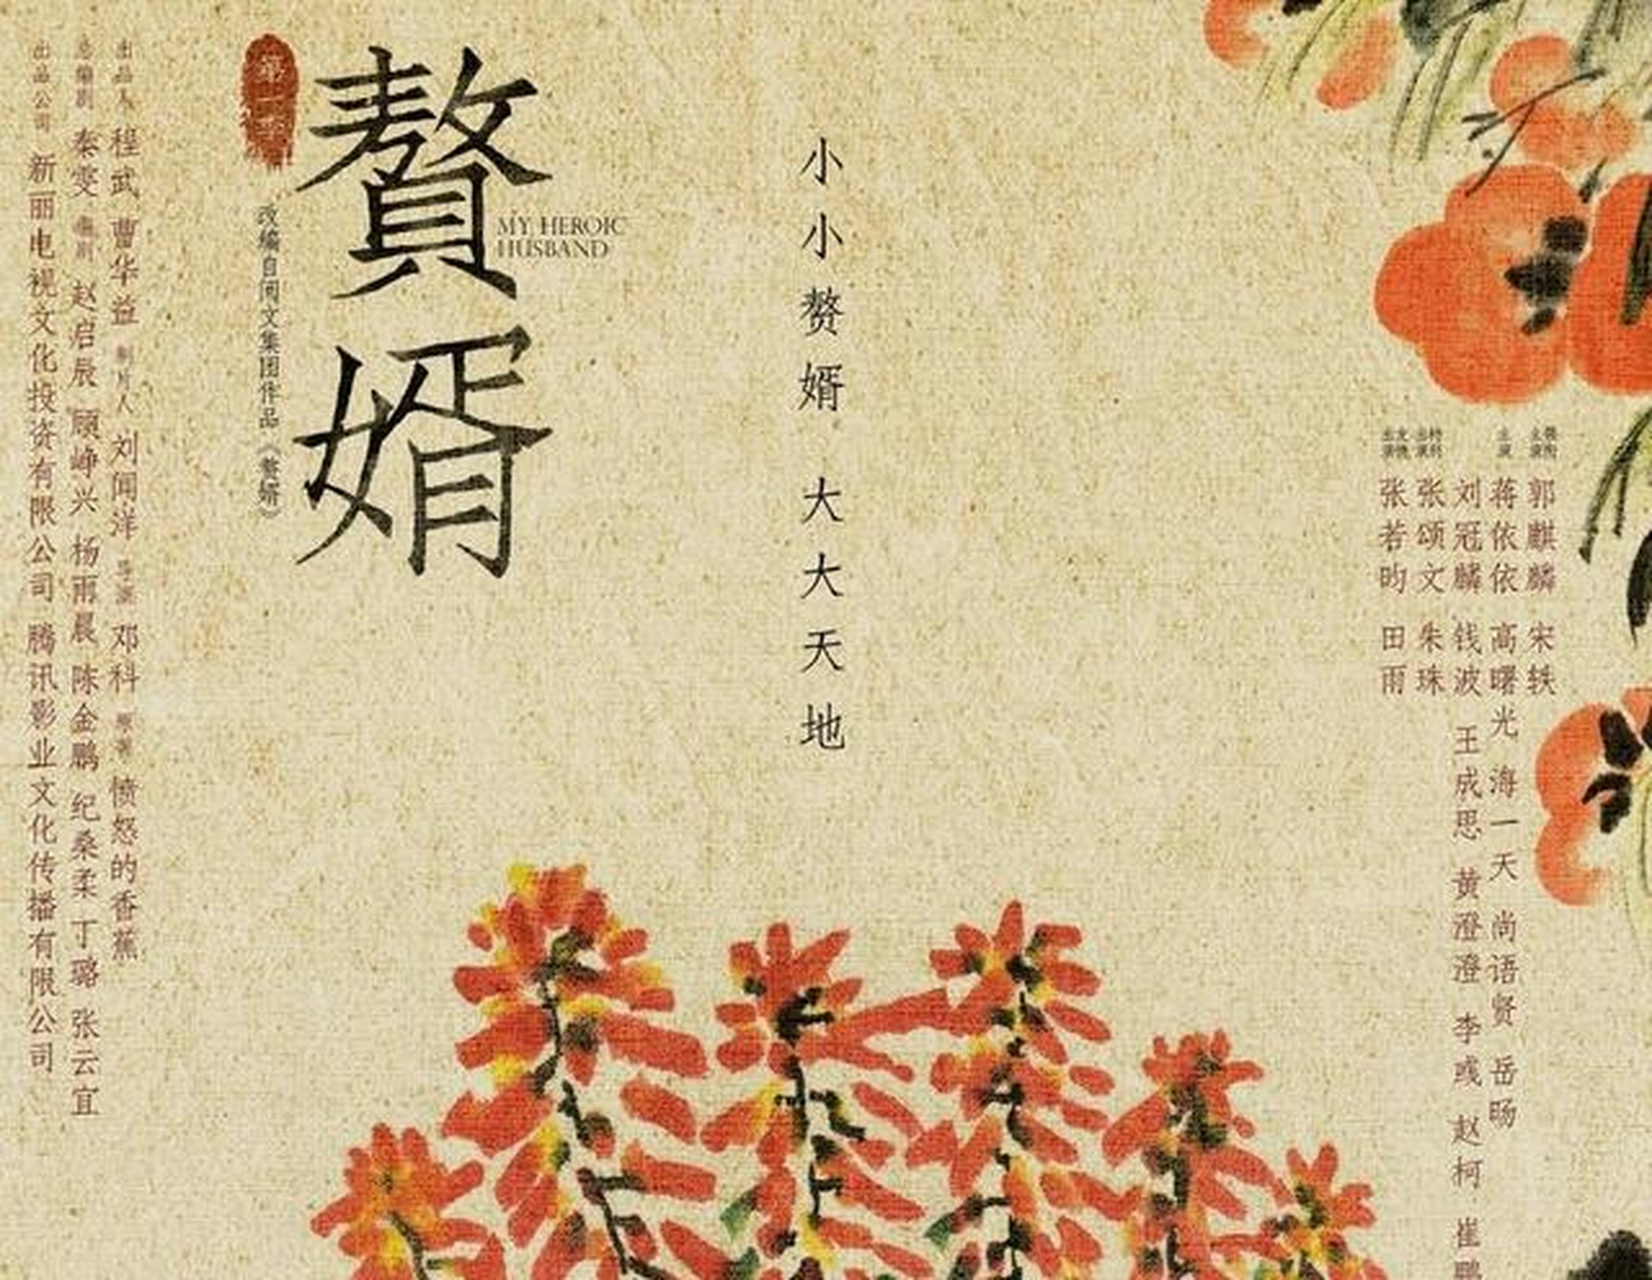 第一季
赘婿
MY HEROIC
HUSBAND
改编自阅文集团作品《赘婿》
小小赘婿 大大天地
出品人 程武 曹华益 制片人 刘闻洋 导演 邓科 原著 愤怒的香蕉
总编剧 秦雯 编剧 赵启辰 顾峥兴 杨雨晨 陈金鹏 纪桑柔 丁璐 张云宜
出品公司 新丽电视文化投资有限公司 腾讯影业文化传播有限公司
领衔主演 郭麒麟 宋轶
主演 蒋依依 高曙光 海一天 尚语贤 岳旸
刘冠麟 钱波 王成思 黄澄澄 李彧 赵柯 崔鹏
特别出演 张颂文 朱珠
友情出演 张若昀 田雨